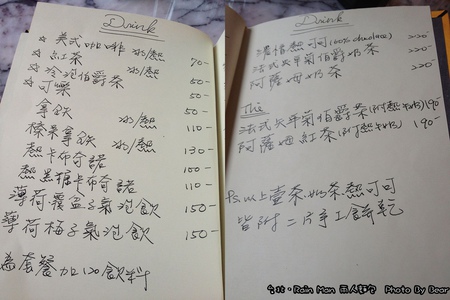 Drink
☆ 美式咖啡 冰/熱 70-
☆ 紅茶 冰/熱 50-
☆ 冷泡伯爵茶 50-
☆ 可樂 50-
拿鐵 冰/熱 110-
榛果拿鐵 冰/熱 130-
熱卡布奇諾 100-
熱黑糖卡布奇諾 110-
薄荷覆盆子氣泡飲 150-
薄荷梅子氣泡飲 150-
為套餐加120飲料
Drink
濃情熱可可(100% chocolate) 220-
法式矢車菊伯爵奶茶 220-
阿薩姆奶茶 220-
Thé
法式矢車菊伯爵茶(附熱鮮奶) 190-
阿薩姆紅茶(附熱鮮奶) 190-
Ps. 以上壺茶.奶茶.熱可可
皆附二片手工餅乾
台北。Rain Man 雨人郵舍 Photo By Dear